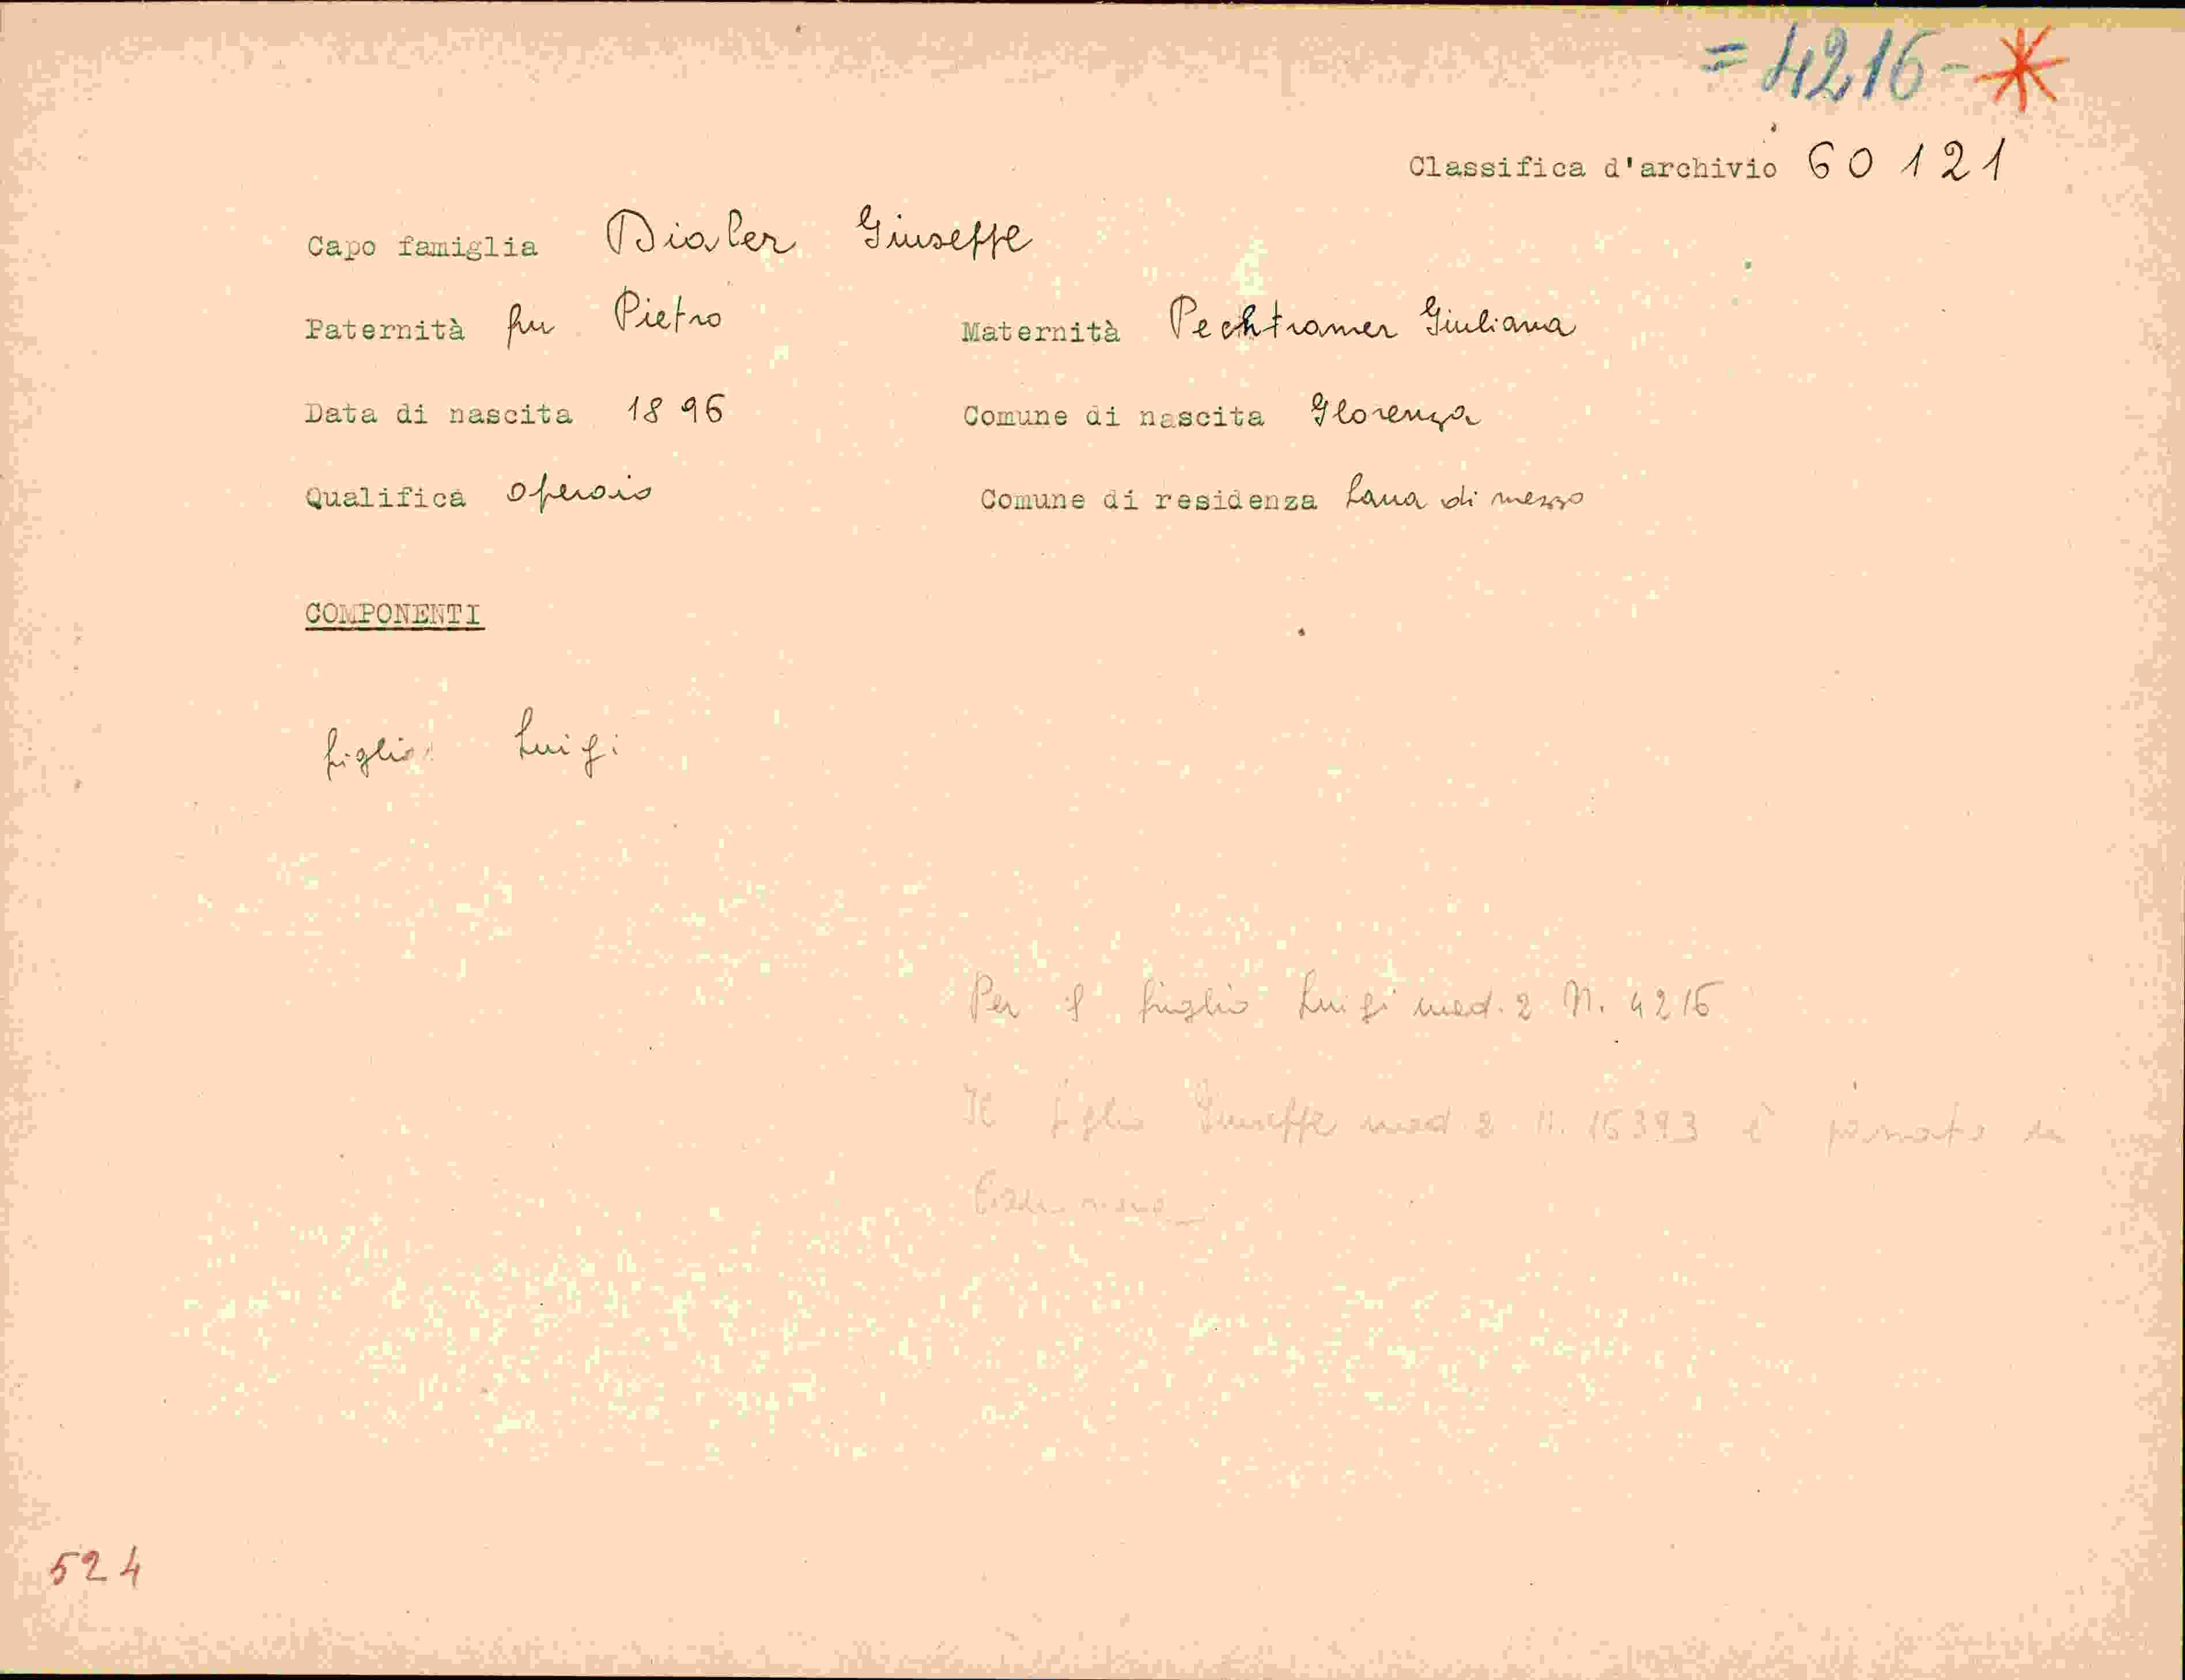 = 4216 - *
Classifica d'archivio 60121
Capo famiglia Dialer Giuseppe
Paternità fu Pietro Maternità Pechtramer Giuliana
Data di nascita 1896 Comune di nascita Glorenza
Qualifica operaio Comune di residenza Lana di mezzo
COMPONENTI
figlio Luigi
Per il figlio Luigi mod. 2 N. 4216
Il figlio Giuseppe mod 2 N. 16393 è
524